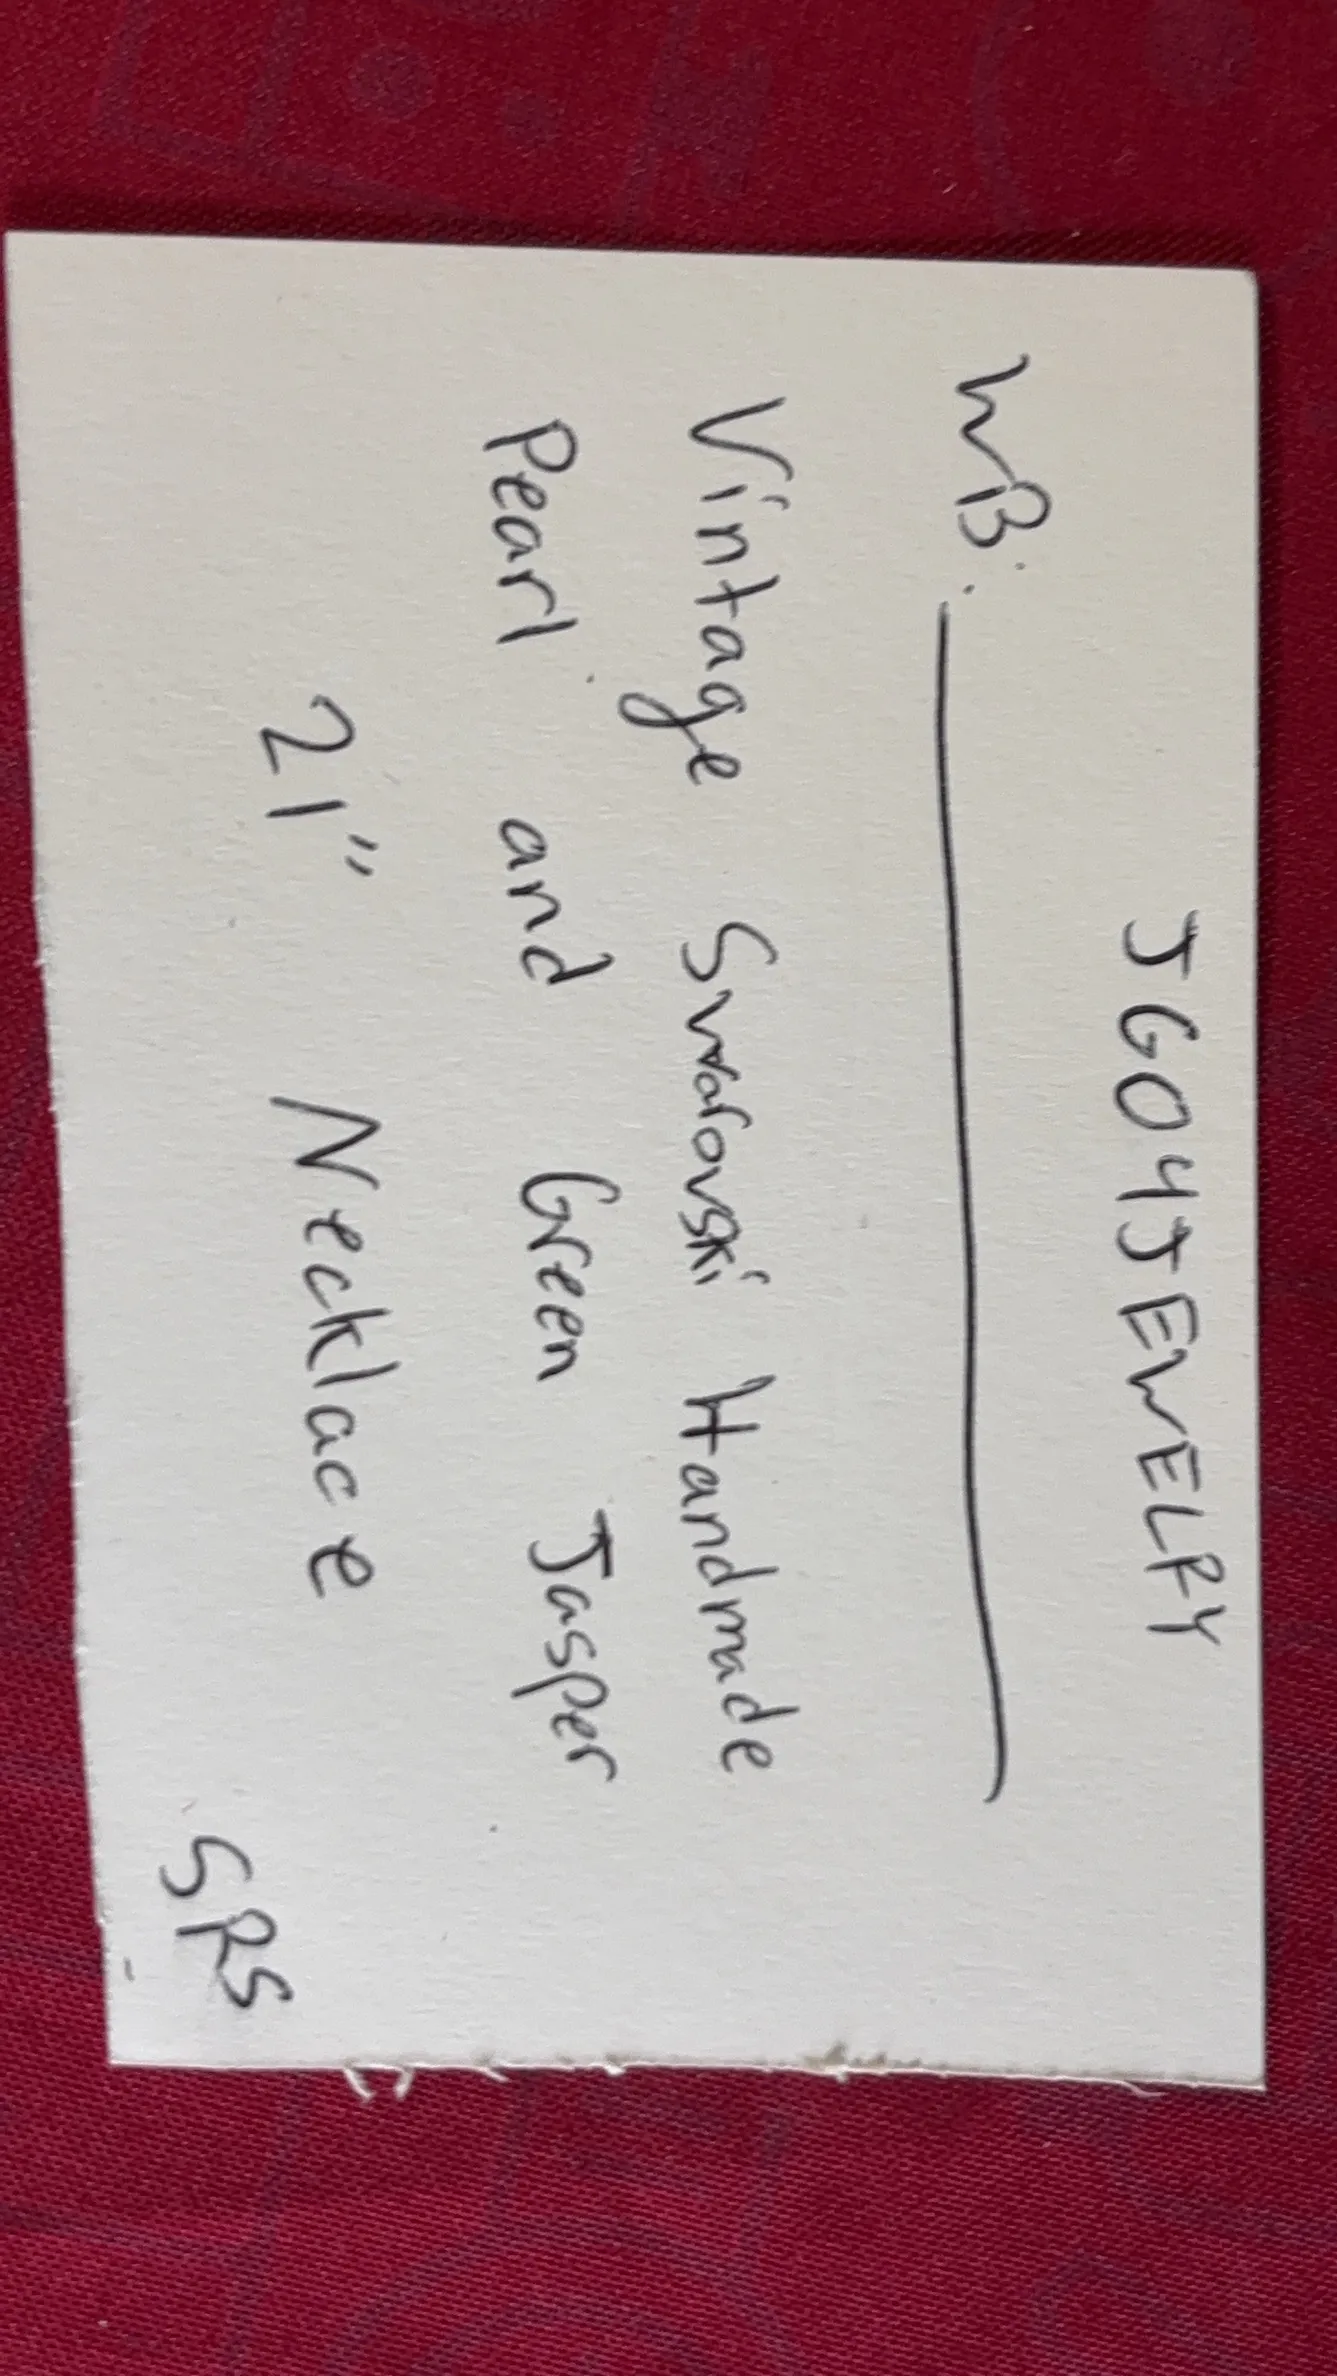 JGO4JEWELRY
WB:
Vintage Swarovski Handmade
Pearl and Green Jasper
21" Necklace
SRS